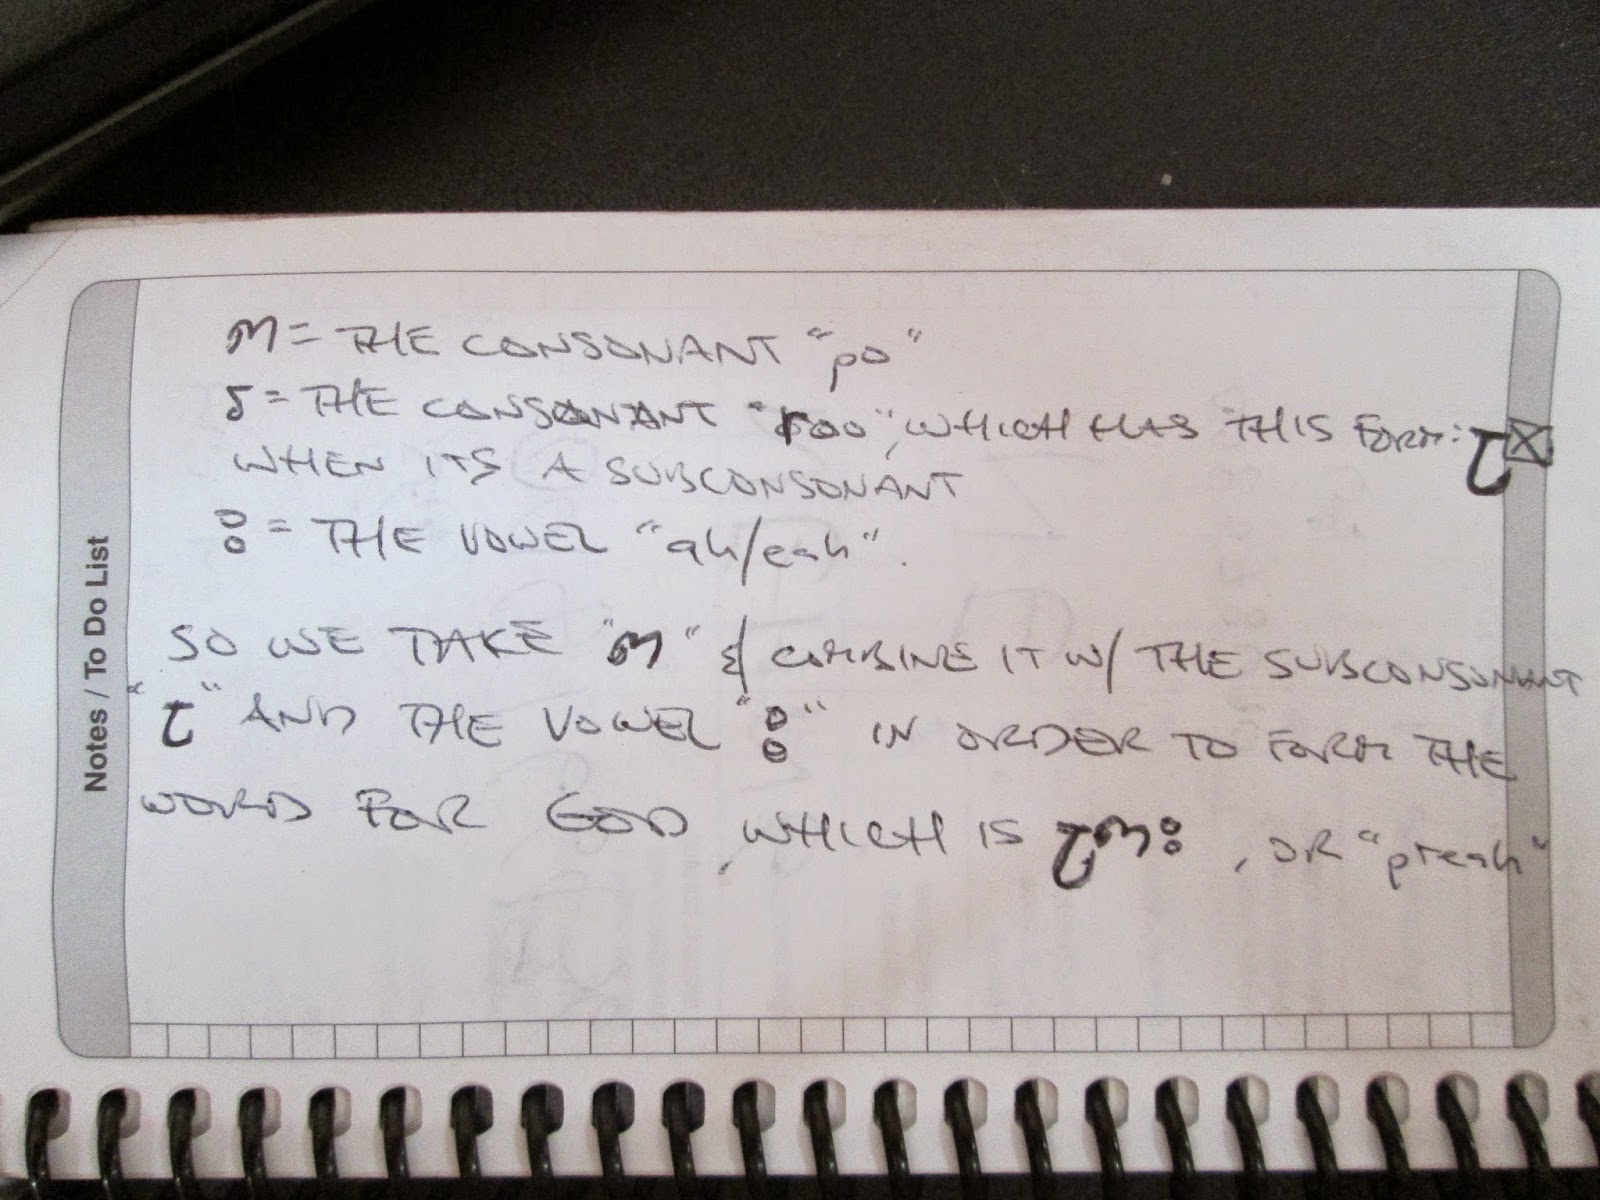 ព = THE CONSONANT "po"
រ = THE CONSONANT "roo", WHICH HAS THIS FORM: ្រ
WHEN ITS A SUBCONSONANT
ះ = THE VOWEL "ah/eah".
SO WE TAKE "ព" & COMBINE IT W/ THE SUBCONSONANT
"្រ" AND THE VOWEL "ះ" IN ORDER TO FORM THE
WORD FOR GOD, WHICH IS ព្រះ, OR "preah"
Notes / To Do List